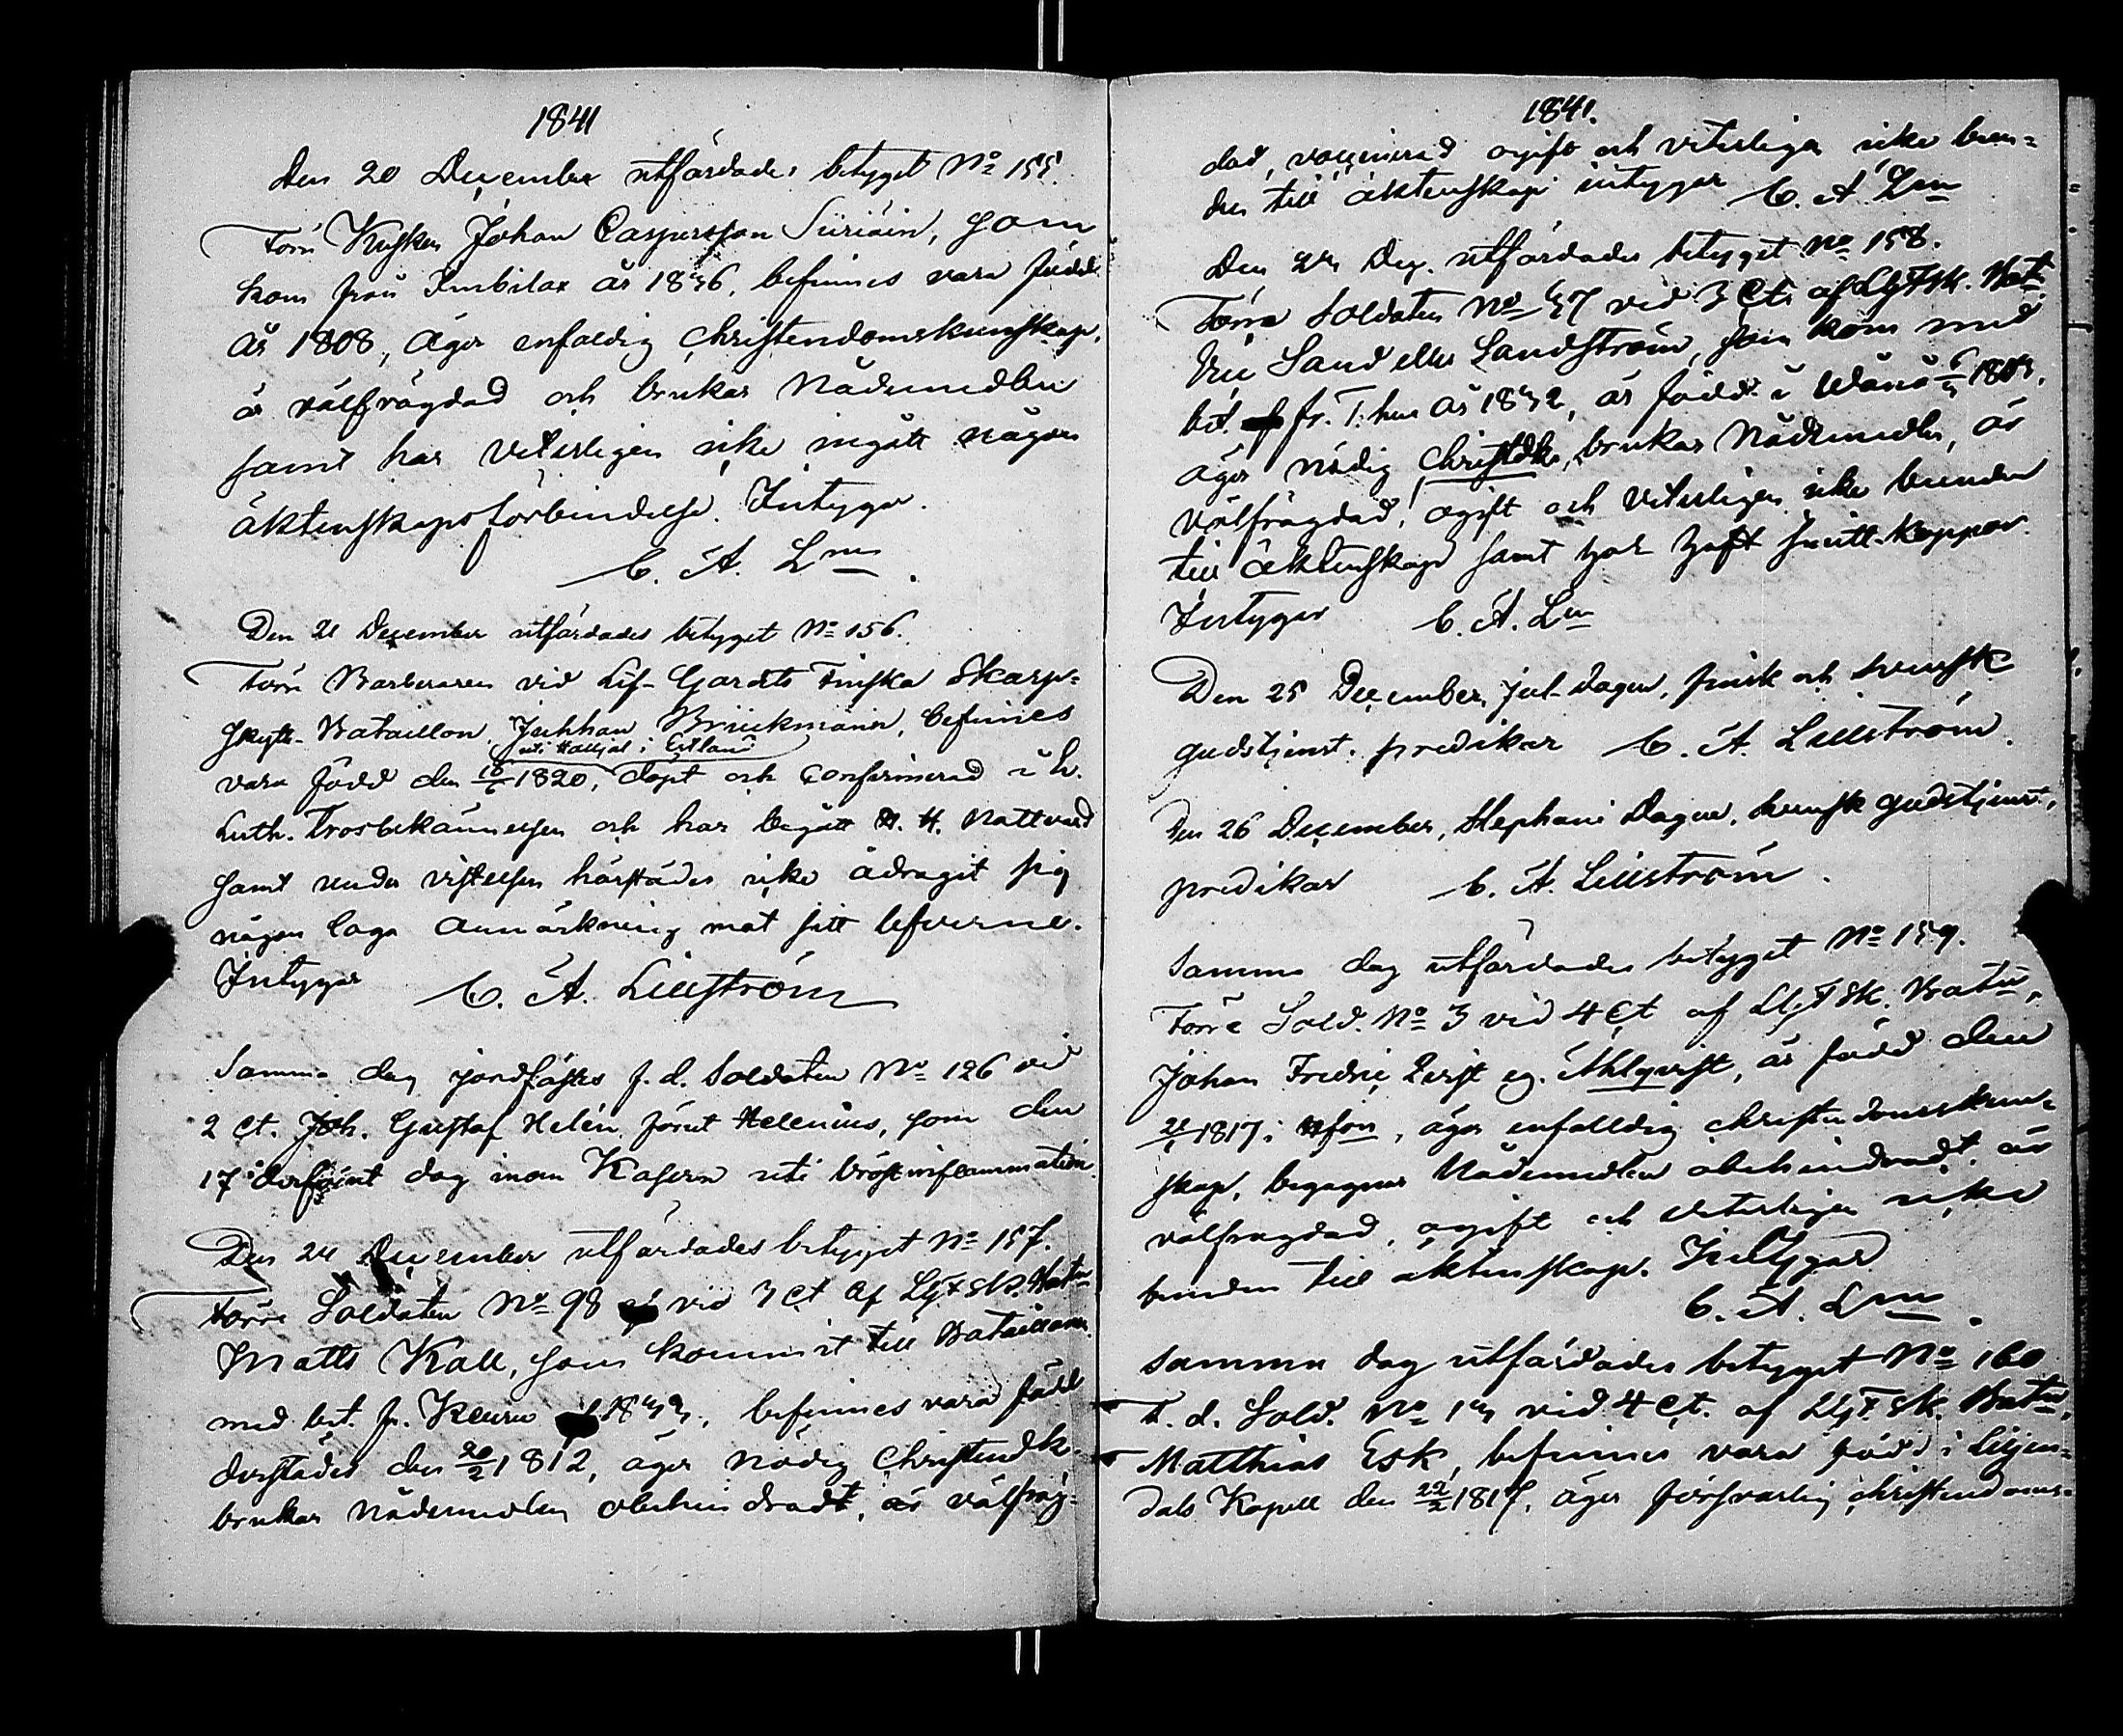 1841
Den 20 December utfärdades betyget No 155.
Förre Kusken Johan Caspersson Siiriäin, som
kom från Imbilax år 1836, befinnes vara född
år 1808, äger enfaldig Christendomskunskap,
är välfrägdad och brukar Nådemedlen
samt har veterligen icke ingått någon
äktenskapsförbindelse. Intygar.
C. A. Lm.
Den 21 December utfärdades betyget No 156.
Förre Barberaren vid Lif-Gardets Finska Skarp-
skytte-Bataillon, Juhhan Brückmann, befinnes
uti Halljal i Estland
vara född den 1820, döpt och confirmerad i Ev.
Luth. Trosbekännelsen och har begått H. H. Nattvard
samt under vistelsen härstädes icke ådragit sig
någon laga anmärkning mot sitt lefverne.
Intygar C. A. Lillström
Samma dag jordfästes f. d. Soldaten No 126 vid
2 Ct. Joh. Gustaf Helén förut Helenius, som den
17 dog inom Kasern uti bröstinflammation.
Den 24 December utfärdades betyget No 157.
Förre Soldaten No 98 vid 3 Ct af LgFSk. Batn
Matts Kall, som kommit till Bataillonen
med bet. fr. befinnes vara född
derstädes den 20/2 1812, äger nödig Christendk.
brukar nådemedlen obehindradt, är välfräg-
1841.
dad, vaccinerad ogift och veterligen icke bun-
den till äktenskap intygar C. A. Lm
Den 24 Dec. utfärdades betyget No 158.
Förre Soldaten No 37 vid 3 Ct. af LgFSk. Bat.
Eric Sand eller Sandström, som kom med
bet. fr. T:hus år 1832, är född i Wånå
äger nödig Christdk, brukar Nådemedlen, är
välfrägdad, ogift och veterligen icke bunden
till äktenskap samt har haft smitt-koppor.
Intygar C. A. Lm
Den 25 December, Jul-dagen, finsk och svensk
gudstjenst. predikar C. A. Lillström.
Den 26 December, Stephani Dagen, svensk gudstjenst,
predikar C. A. Lillström.
Samma dag utfärdades betyget No 159.
Förre Sold. No 3 vid 4 Ct af LgFSk. Batn,
Johan Fredric Qvist eg. Ahlqvist, är född den
1817 i Hfors, äger enfalldig christendomskun-
skap, begagnar Nådemedlen obehindradt, är
välfrägdad, ogift och veterligen icke
bunden till äktenskap. Intygar
C. A. Lm.
Samma dag utfärdades betyget No 160
F. d. Sold. No 13 vid 4 Ct. af LgF.Sk. Batn,
Matthias Esk, befinnes vara född i Liljen-
dals Kapell den 22/2 1817, äger försvarlig christendoms-